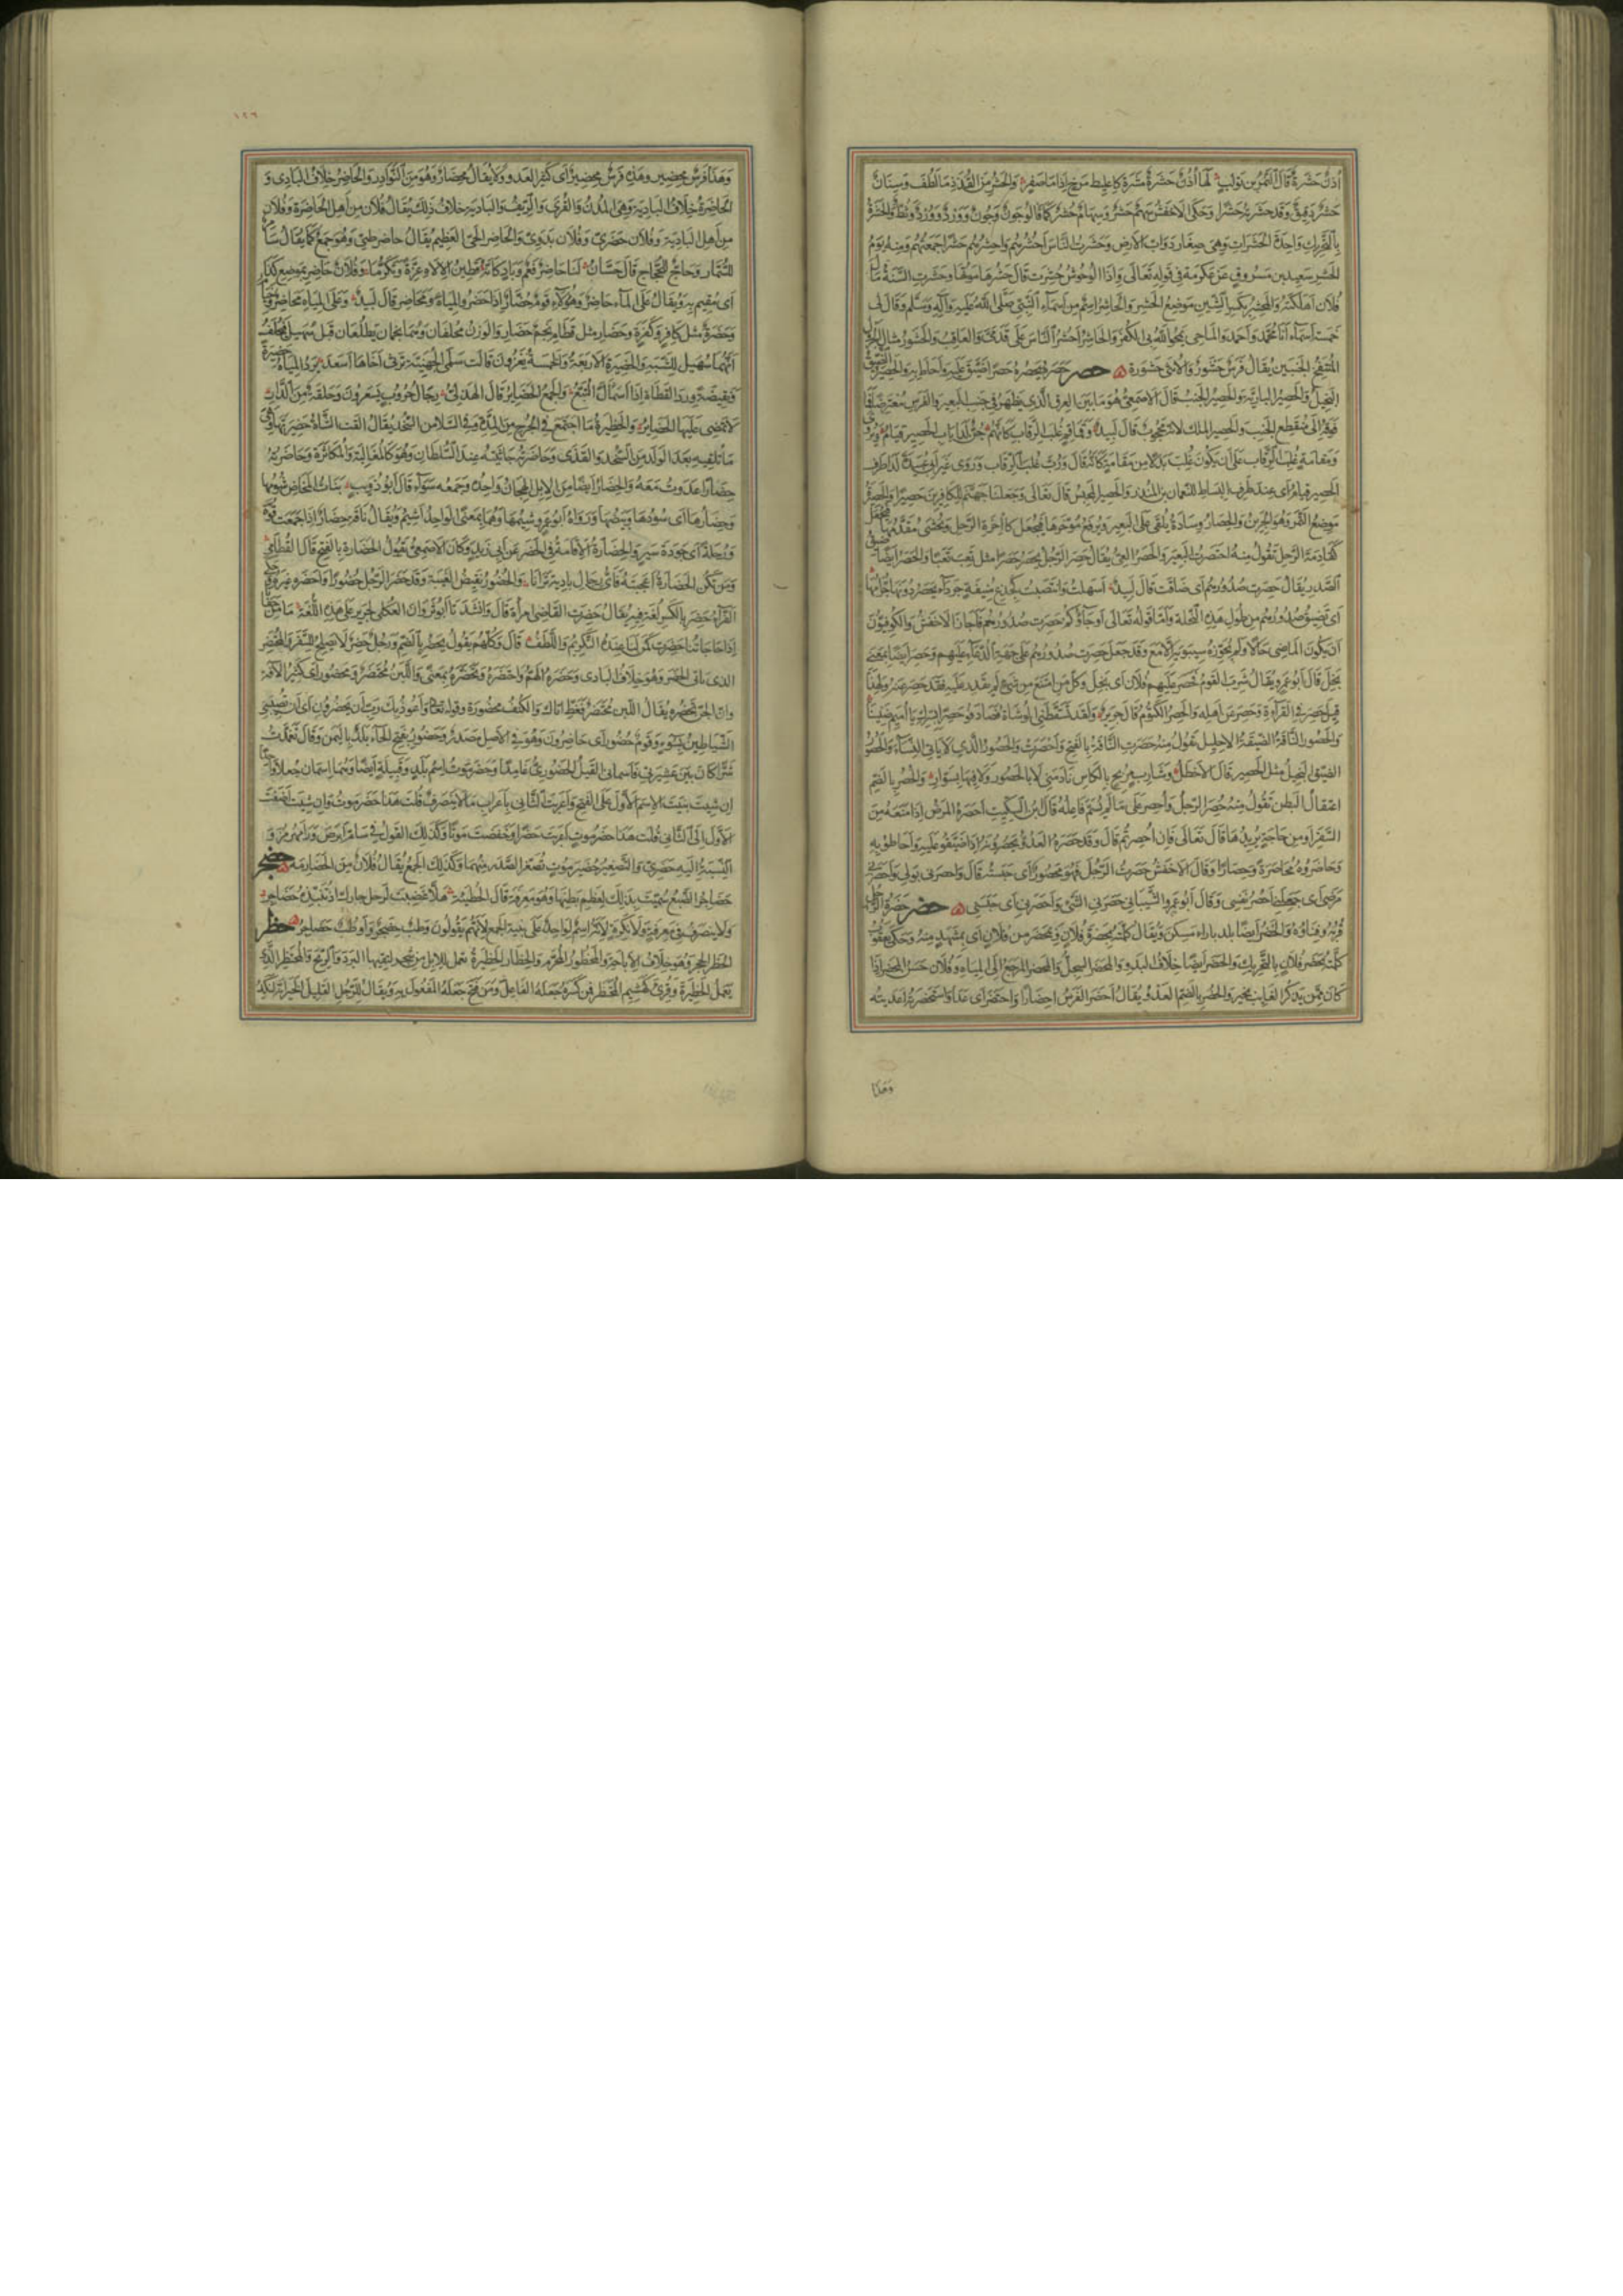 اذن حشرة قال النمر بن تولب لها اذن حشرة مشرة كاعليط مرخ اذا ما صفر والحشر من القذذ ما لطف وسنان
حشر دقيق وقد حشرته حشرا وحكى الاخفش سهم حشر وسهام حشر كما قالوا جون وجون وورد وورد وثط وثط والحشرة
بالتحريك واحدة الحشرات وهي صغار دواب الارض وحشرت الناس احشرهم واحشرهم حشرا جمعتهم ومنه يوم
الحشر سعيد بن مسروق عن عكرمة في قوله تعالى واذا الوحوش حشرت قال حشرها موتها وحشرت السنة مال
فلان اهلكته والمحشر بكسر الشين موضع الحشر والحاشر اسم من اسماء النبي صلى الله عليه وآله وسلم وقال لي
خمسة اسماء انا محمد واحمد والماحي يمحو الله بي الكفر والحاشر احشر الناس على قدمي والعاقب والحشور مثال الجرول
المنتفخ الجنبين يقال فرس حشور والانثى حشورة حصر حصره يحصره حصرا ضيق عليه واحاط به والحصير الضيق
البخيل والحصير البارية والحصير الجنب قال الاصمعي هو ما بين العرق الذي يظهر في جنب البعير والفرس معترضا فما
فوقه الى منقطع الجنب والحصير الملك لانه محجوب قال لبيد وقماقم غلب الرقاب كانهم جن لدى باب الحصير قيام ويروى
ومقامة غلب الرقاب على ان يكون غلب بدلا من مقامة كانه قال ورب غلب الرقاب وروى غير ابي عبيدة لدى طرف
الحصير قيام اي عند طرف البساط للنعمان بن المنذر والحصير المحبس قال تعالى وجعلنا جهنم للكافرين حصيرا والحصير
موضع التمر وهو الجرين والحصار وسادة تلقى على البعير ويرفع مؤخرها فيجعل كاخرة الرحل ويحشى مقدمها فيجعل
كقادمة الرحل تقول منه احتصرت البعير والحصر العي يقال حصر الرجل يحصر حصرا مثل تعب تعبا والحصر ايضا ضيق
الصدر يقال حصرت صدورهم اي ضاقت قال لبيد اسهلت وانتصبت كجذع منيفة جرداء يحصر دونها جرامها
اي تضيق صدورهم من طول هذه النخلة واما قوله تعالى او جاؤكم حصرت صدورهم فاجاز الاخفش والكوفيون
ان يكون الماضي حالا ولم يجوزه سيبويه الا مع قد وجعل حصرت صدورهم على جهة الدعاء عليهم وحصر ايضا بمعنى
بخل قال ابو عمرو يقال شرب القوم فحصر عليهم فلان اي بخل وكل من امتنع من شيء لم يقدر عليه فقد حصر عنه ولهذا
قيل حصر في القراءة وحصر عن اهله والحصر الكتوم قال جرير ولقد تسقطني الوشاة فصادفوا حصرا بسرك يا اميم ضنينا
والحصور الناقة الضيقة الاحليل تقول منه حصرت الناقة بالفتح واحصرت والحصور الذي لا ياتي النساء والحصور
الضيق البخيل مثل الحصير قال الاخطل وشارب مربح بالكاس نادمني لا بالحصور ولا فيها بسوار والحصر بالضم
اعتقال البطن تقول منه حصر الرجل واحصر على ما لم يسم فاعله قال ابن السكيت احصره المرض اذا منعه من
السفر او من حاجة يريدها قال تعالى فان احصرتم قال وقد حصره العدو يحصرونه اذا ضيقوا عليه واحاطوا به
وحاصروه محاصرة وحصارا وقال الاخفش حصرت الرجل فهو محصور اي حبسته قال واحصرني بولي واحصرني
مرضي اي جعلني احصر نفسي وقال ابو عمرو الشيباني حصرني الشيء واحصرني اي حبسني حضر حضرة الرجل
قربه وفناؤه والحضر ايضا بلد بازاء مسكن ويقال كلمته بحضرة فلان وبمحضر من فلان اي بمشهد منه وحكى يعقوب
كلمته بحضر فلان بالتحريك والحضر ايضا خلاف البدو والمحضر السجل والمحضر المرجع الى المياه وفلان حسن المحضر اذا
كان ممن يذكر الغايب بخير والحضر بالضم العدو يقال احضر الفرس احضارا واحتضر اي عدا واستحضرته اعديته
وهذا
١٢٦
وهذا فرس محضير وهذه فرس محضير اي كثير العدو ولا يقال محضار وهو من النوادر والحاضر خلاف البادي و
الحاضرة خلاف البادية وهي المدن والقرى والريف والبادية خلاف ذلك يقال فلان من اهل الحاضرة وفلان
من اهل البادية وفلان حضري وفلان بدوي والحاضر الحي العظيم يقال حاضر طيئ وهو جمع كما يقال سامر
للسمار وحاج للحجاج قال حسان لنا حاضر فعم وباد كانه قطين الاله عزة وتكرما وفلان حاضر بموضع كذا
اي مقيم به ويقال على الماء حاضر وهؤلاء قوم حضار اذا حضروا المياه ومحاضر قال لبيد وعلى المياه محاضر وخيام
وحضرة مثل كافر وكفرة وحضار مثل قطام نجم حضار والوزن محلفان وهما نجمان يطلعان قبل سهيل فيحلف
انهما سهيل للشبه والحضيرة الاربعة والخمسة يغزون قالت سلمى الجهنية ترثي اخاها اسعد يرد المياه حضيرة
ونفيضة ورد القطاة اذا اسمأل التبع والجمع الحضاير قال الهذلي رجال حروب يسعرون وحلقة من الدار
لا تمضي عليها الحضاير والحضيرة ما اجتمع في الجرح من المدة وفي السلا من السخد يقال القت الشاة حضيرتها وهي
ما تلقيه بعد الولد من السخد والقذى وحاضرته جاثيته عند السلطان وهو كالمغالبة والمكاثرة وحاضرته
حضارا عدوت معه والحضار ايضا من الابل الهجان واحده وجمعه سواء قال ابو ذؤيب بنات المخاض شومها
وحضارها اي سودها وبيضها ورواه ابو عمرو شيمها وهما بمعنى الواحد اشيم ويقال ناقة حضار اذا جمعت قوة
ورحلة اي جودة سير والحضارة الاقامة في الحضر عن ابي زيد وكان الاصمعي يقول الحضارة بالفتح قال القطامي
ومن تكن الحضارة اعجبته فاي رجال بادية ترانا والحضور نقيض الغيبة وقد حضر الرجل حضورا واحضره غيره وحكى
الفراء حضر بالكسر لغة فيه يقال حضرت القاضي امرأة قال وانشدنا ابو ثروان العكلي لجرير على هذه اللغة ما من جفانا
اذا حاجاتنا حضرت كمن لنا عنده التكريم واللطف قال وكلهم يقول يحضر بالضم ورجل حضر لا يصلح للسفر والمحتضر
الذي ياتي الحضر وهو خلاف البادي وحضره الهم واحتضره وتحضره بمعنى واللبن محتضر ومحضور اي كثير الافة
وان الجن تحضره يقال اللبن محتضر فغط اناءك والكنف محضورة وقوله تعالى واعوذ بك رب ان يحضرون اي ان تصيبني
الشياطين بسوء وقوم حضور اي حاضرون وهو في الاصل مصدر وحضور بفتح الحاء بلد باليمن وقال تغمدت
شرا كان بين عشيرتي فاسماني القيل الحضوري غامدا وحضرموت اسم بلد وقبيلة ايضا وهما اسمان جعلا واحدا
ان شيت بنيت الاسم الاول على الفتح واعربت الثاني باعراب ما لا ينصرف قلت هذا حضرموت وان شيت اضفت
الاول الى الثاني قلت هذا حضرموت اعربت حضرا وخفضت موتا وكذلك القول في سام ابرص ورامهرمز و
النسبة اليه حضرمي والتصغير حضيرموت تصغر الصدر منهما وكذلك الجمع يقال فلان من الحضارمة حضجر
حضاجر الضبع سميت بذلك لعظم بطنها وهو معرفة قال الحطيئة هلا غضبت لرحل جارك اذ تنبذه حضاجر
ولا ينصرف في معرفة ولا نكرة لانه اسم لواحد على بنية الجمع لانهم يقولون وطب حضجر واوطب حضاجر حظر
الحظر الحجر وهو خلاف الاباحة والمحظور المحرم والحظار الحظيرة تعمل للابل من شجر لتقيها البرد والريح والمحتظر الذي
يعمل الحظيرة وقرئ كهشيم المحتظر فمن كسره جعله الفاعل ومن فتح جعله المفعول به ويقال للرجل القليل الخير انه لنكد